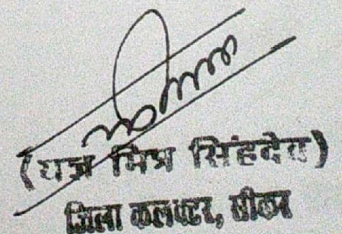 (यज्ञ मित्र सिंहदेव)
जिला कलक्टर, सीकर